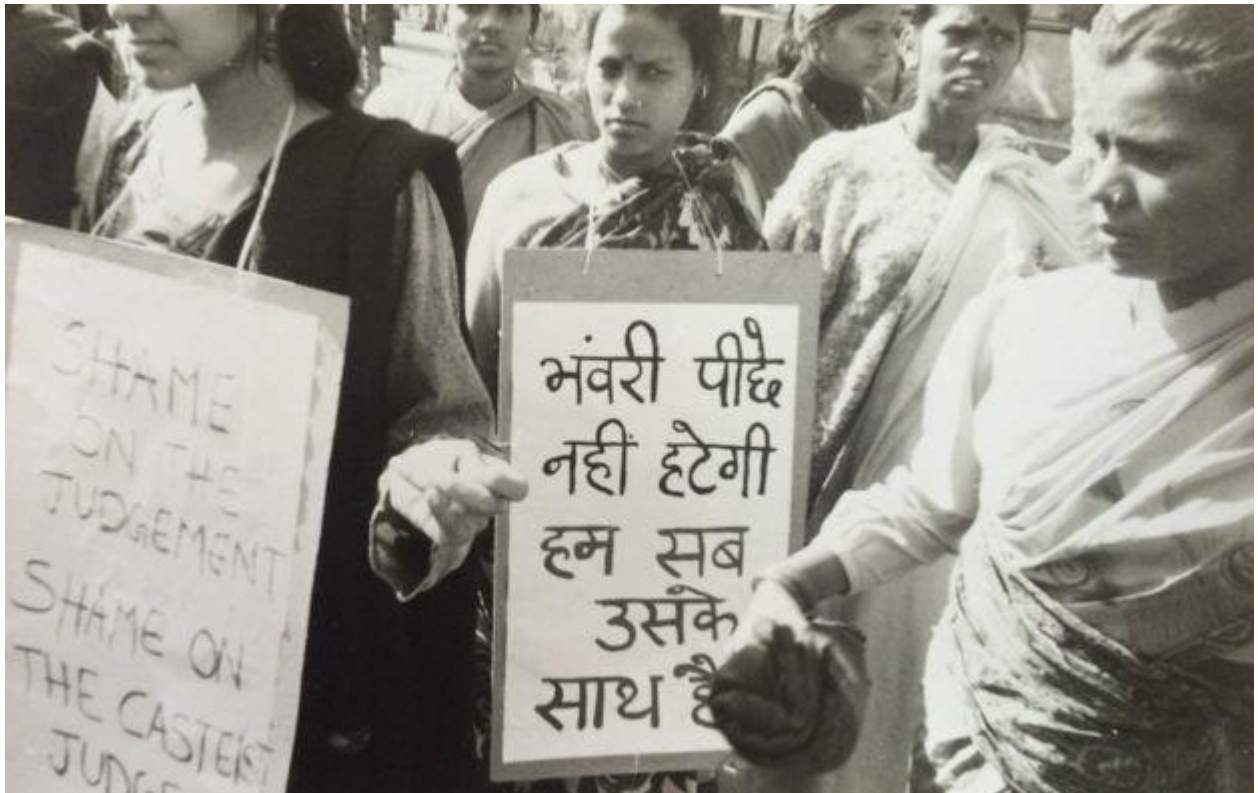 SHAME
ON THE
JUDGEMENT
SHAME ON
THE CASTEIST
भंवरी पीछै
नहीं हटेगी
हम सब
उसके
साथ